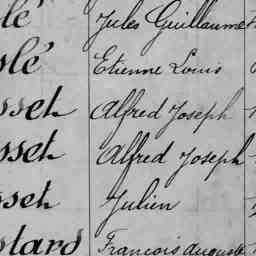 lé Jules Guillaume
slé Etienne Louis
sset Alfred Joseph
sset Alfred Joseph
sset Julien
stard François Auguste